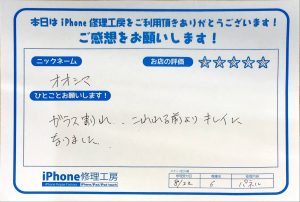 本日は iPhone 修理工房をご利用頂きありがとうございます!
ご感想をお願いします!
ニックネーム
お店の評価
オオシマ
ひとことお願いします!
ガラス割れ、こわれる前よりキレイに
なりました。
iPhone修理工房
iPhone Repair Factory iPhone/iPad/iPod touch
8/22 6 パネル